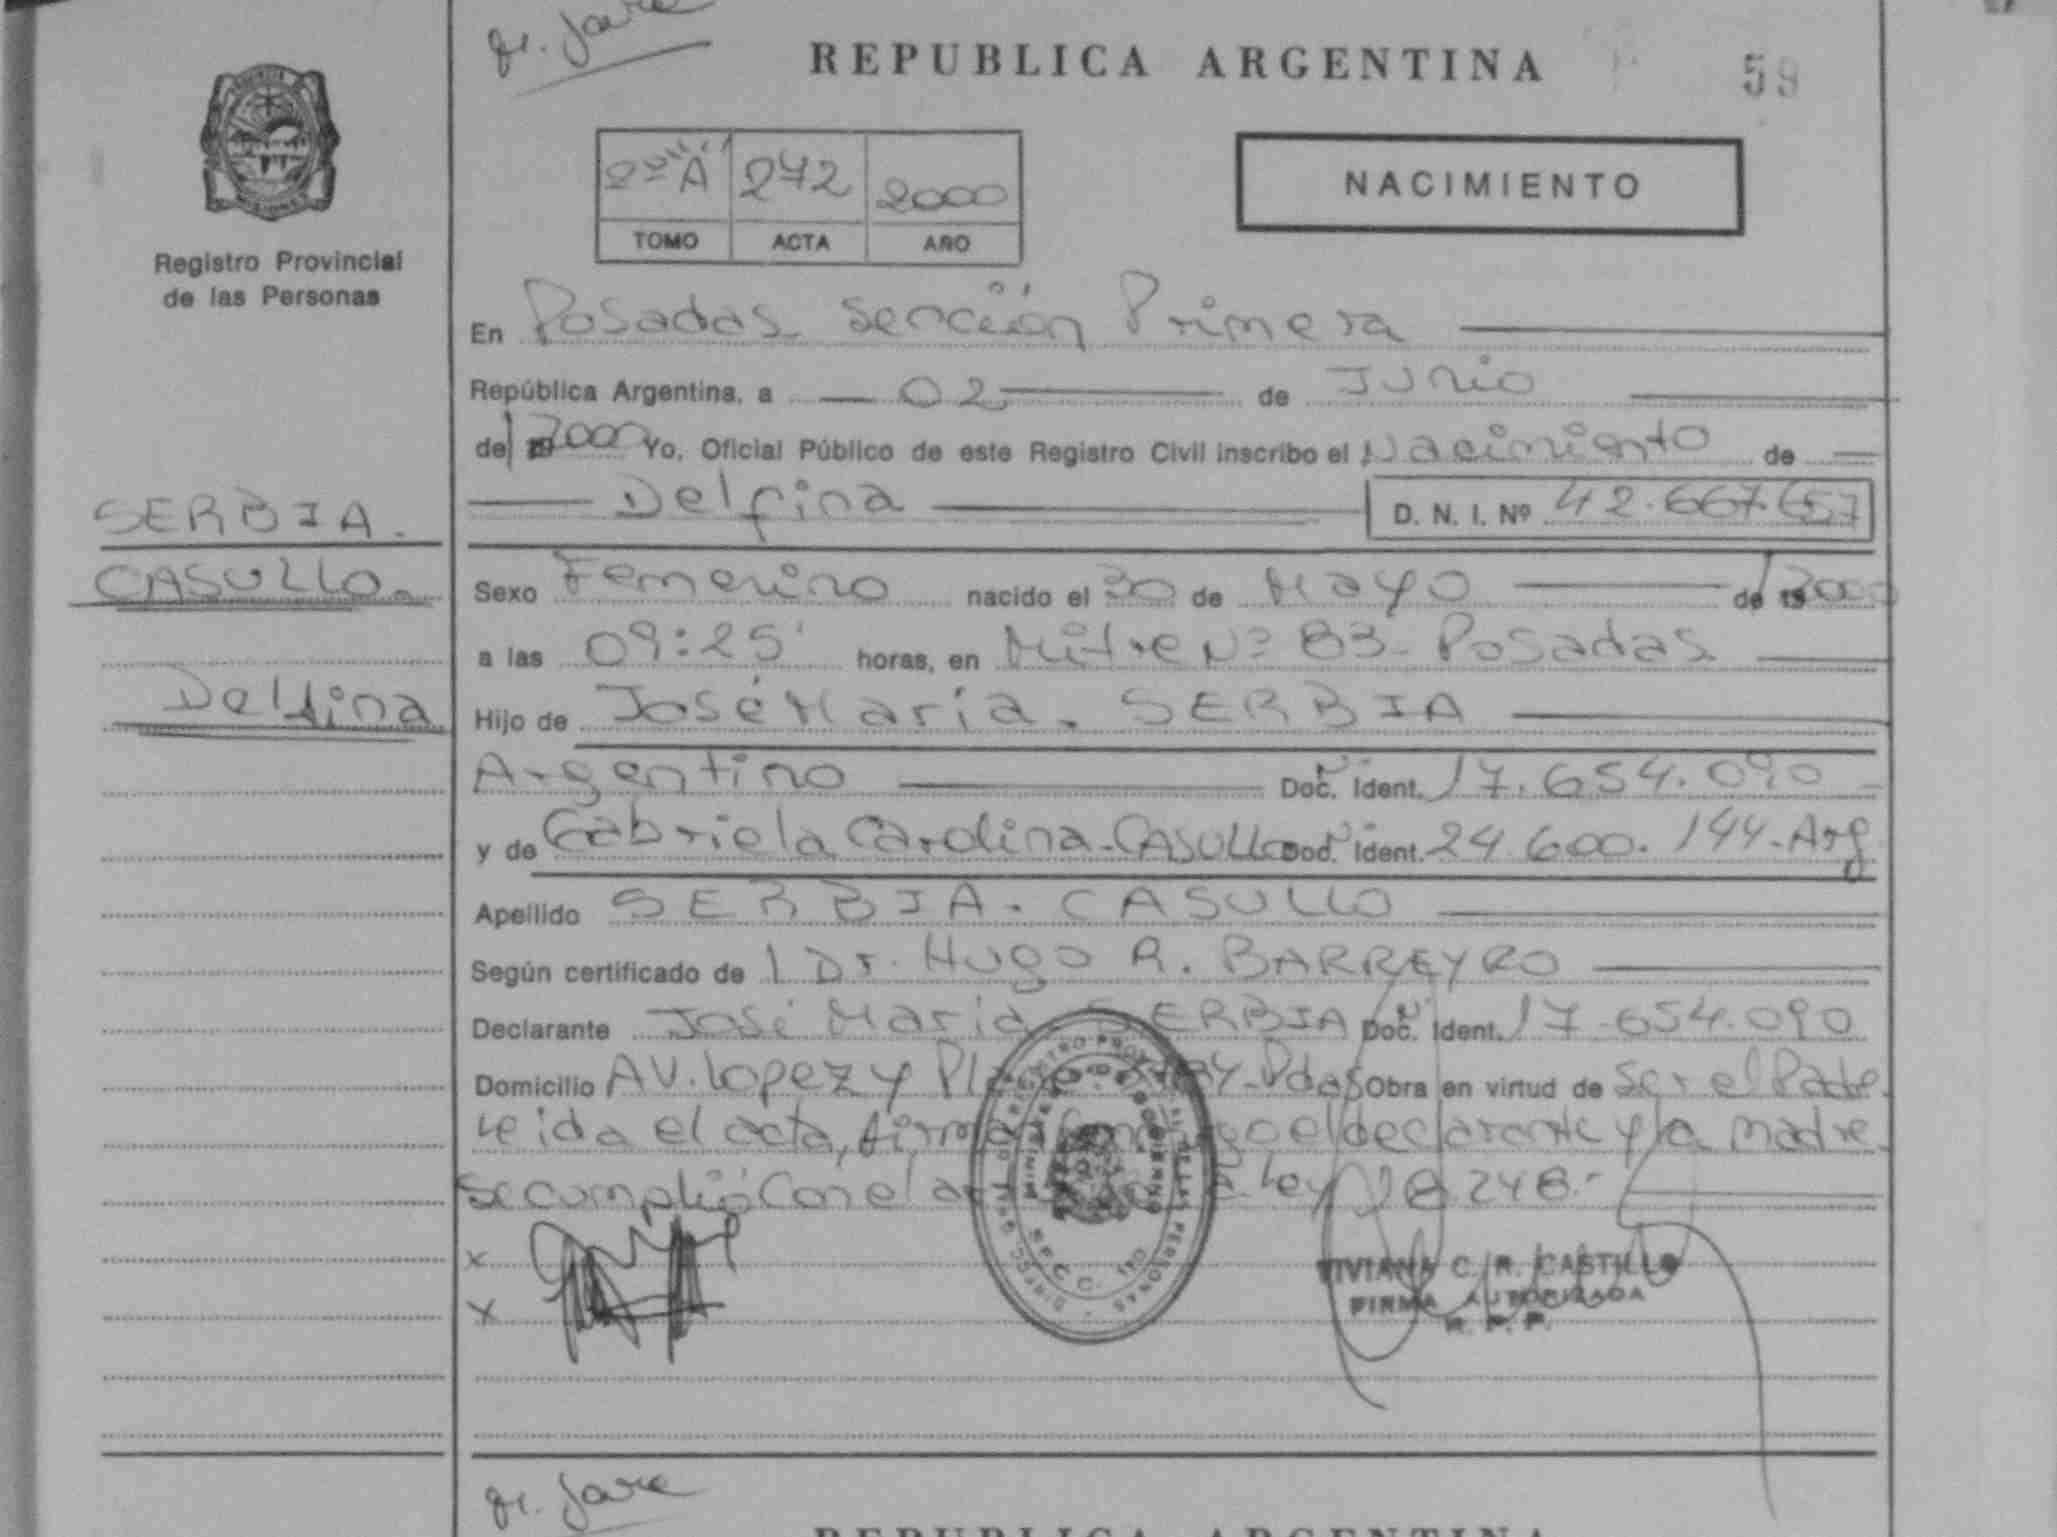 REPUBLICA ARGENTINA 59
Registro Provincial
de las Personas
2º "A" 272 2000
TOMO ACTA AÑO
NACIMIENTO
En Posadas Sección Primera
República Argentina, a 02 de Junio
de 2000 Yo, Oficial Público de este Registro Civil inscribo el Nacimiento de
Delfina D. N. I. Nº 42.667.657
SERBIA.
CASULLO.
Delfina
Sexo Femenino nacido el 30 de Mayo de 2000
a las 09:25' horas, en Mitre Nº 83- Posadas
Hijo de José María. SERBIA
Argentino Doc. Ident. 17.654.090
y de Gabriela Carolina-CASULLO Doc. Ident. 24.600.144-Arg
Apellido SERBIA-CASULLO
Según certificado del Dr. Hugo R. BARREYRO
Declarante José María SERBIA Doc. Ident. 17.654.090
Domicilio AV. Lopez y Pdas Obra en virtud de Ser el Padre.
Leida el acta, el declarante y la madre.
Se cumplió con el Ley 18.248.-
X
X
VIVIANA C. R. CASTILLO
FIRMA AUTORIZADA
R. P. P.
REPUBLICA ARGENTINA